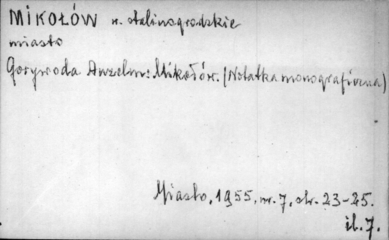 MIKOŁÓW w. stalinogrodzkie
miasto
Gorywoda Anzelm: Mikołów. (Notatka monograficzna)
Miasto, 1955, nr. 7, str. 23-25.
il. 7.